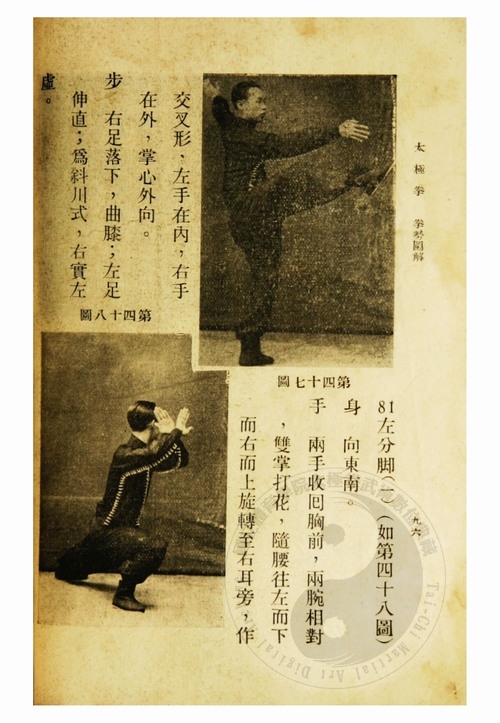 太極拳 拳勢圖解
九六
第四十七圖
81左分脚(一)(如第四十八圖)
身 向東南。
手 兩手收囘胸前,兩腕相對
,雙掌打花,隨腰往左而下
而右而上旋轉至右耳旁,作
交叉形、左手在內,右手
在外,掌心外向。
步 右足落下,曲膝;左足
伸直;爲斜川式,右實左
虛。
第四十八圖
Tai-Chi Martial Art Digital